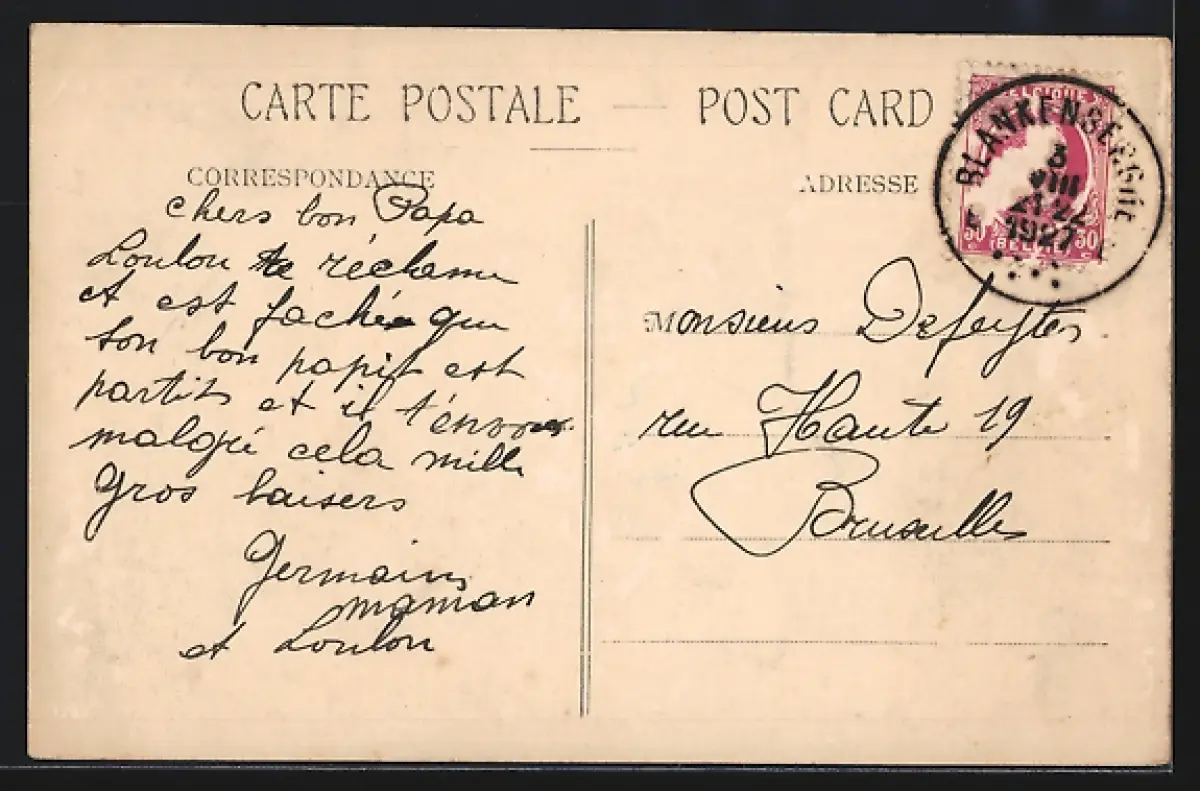 CARTE POSTALE — POST CARD
CORRESPONDANCE
ADRESSE
BELGIQUE
BLANKENBERGHE
3
VIII
21-22
1927
30
30
BELGIE
chers bon Papa
Loulou te réclame
et est fachée que
son bon papit est
partit et il t'envoies
malgré cela mille
gros baisers
Germaine
maman
et Loulou
Monsieur Defeyter
rue Haute 19
Bruxelles